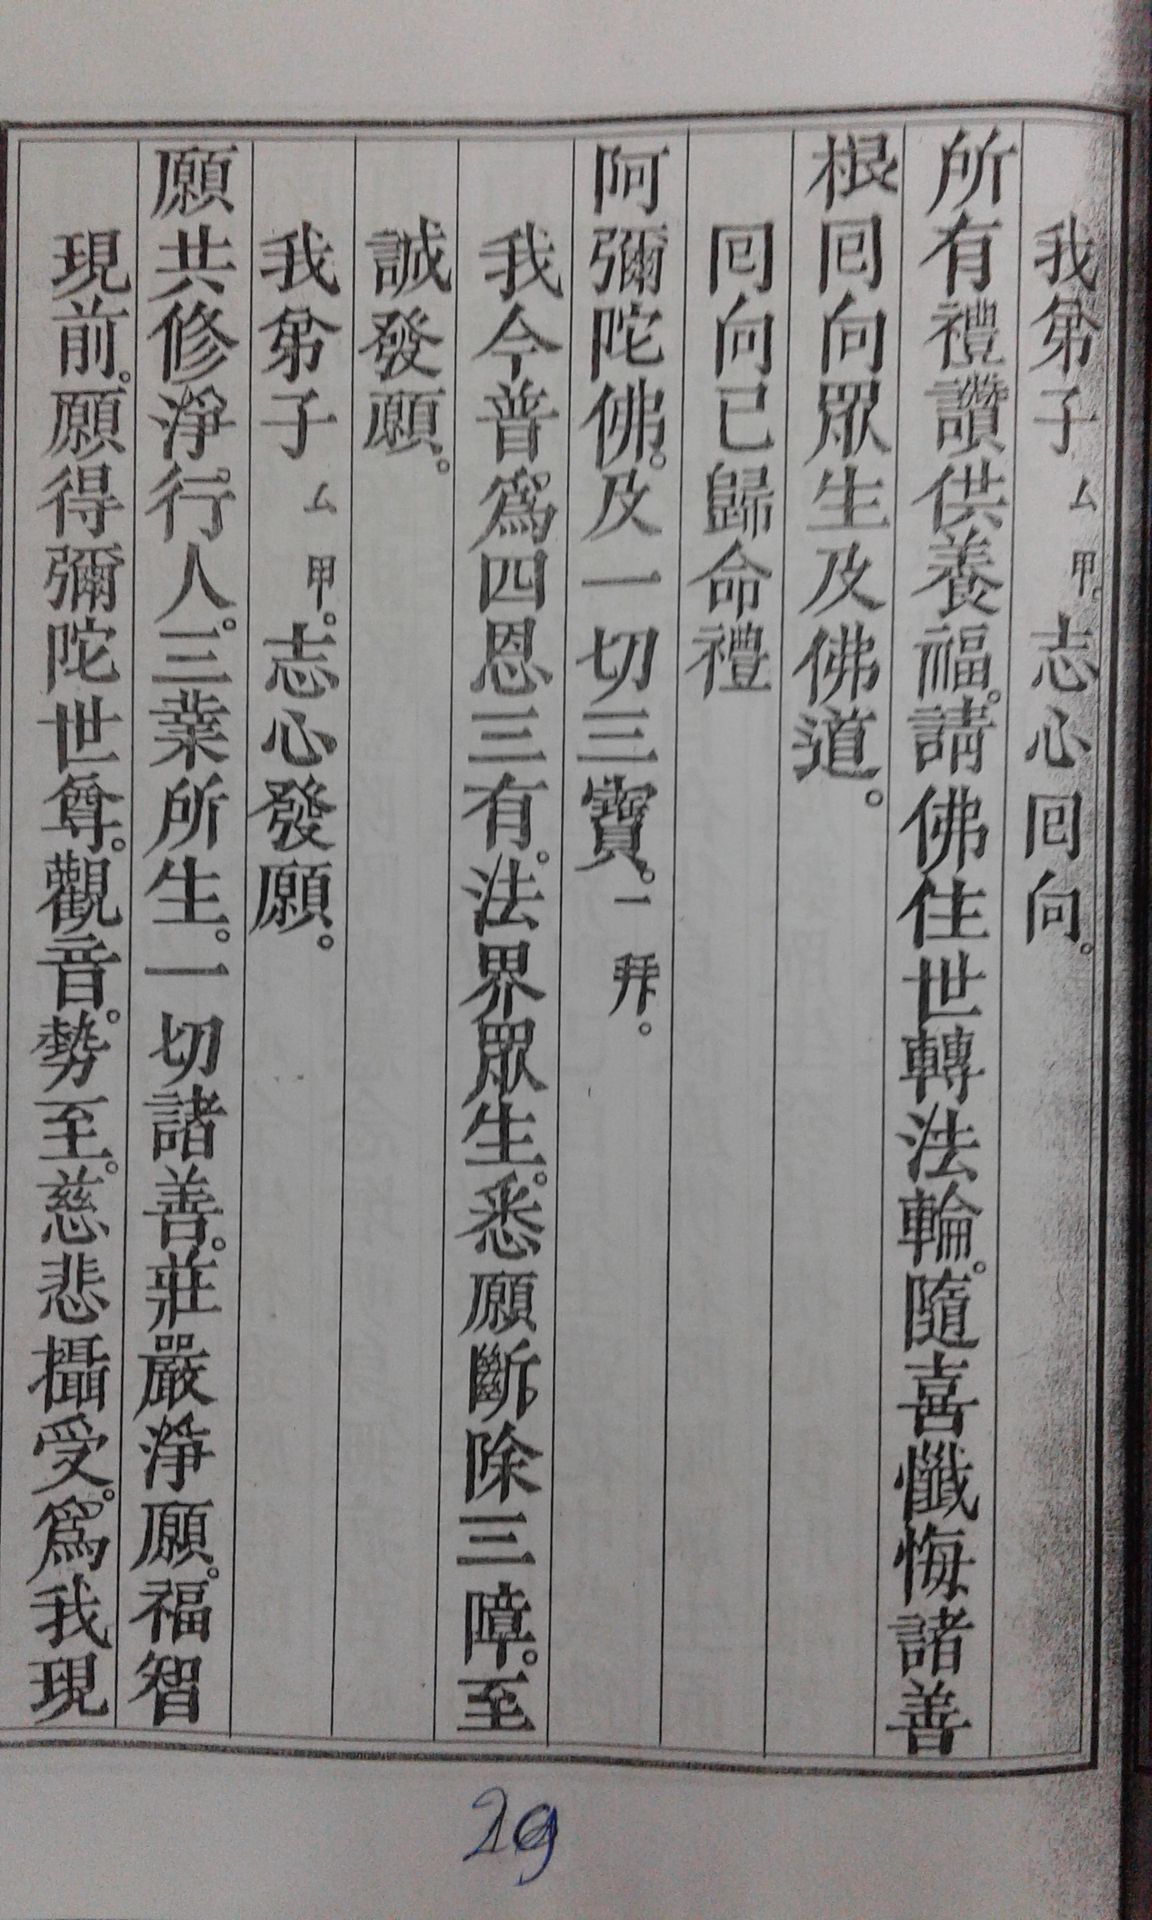 我弟子 厶 甲。志心回向。
所有禮讚供養福。請佛住世轉法輪。隨喜懺悔諸善
根回向眾生及佛道。
回向已歸命禮
阿彌陀佛。及一切三寶。一 拜。
我今普爲四恩三有。法界眾生。悉願斷除三障。至
誠發願。
我弟子 厶 甲。志心發願。
願共修淨。行人。三業所生。一切諸善。莊嚴淨願。福智
現前。願得彌陀世尊。觀音。勢至。慈悲攝受。爲我現
29